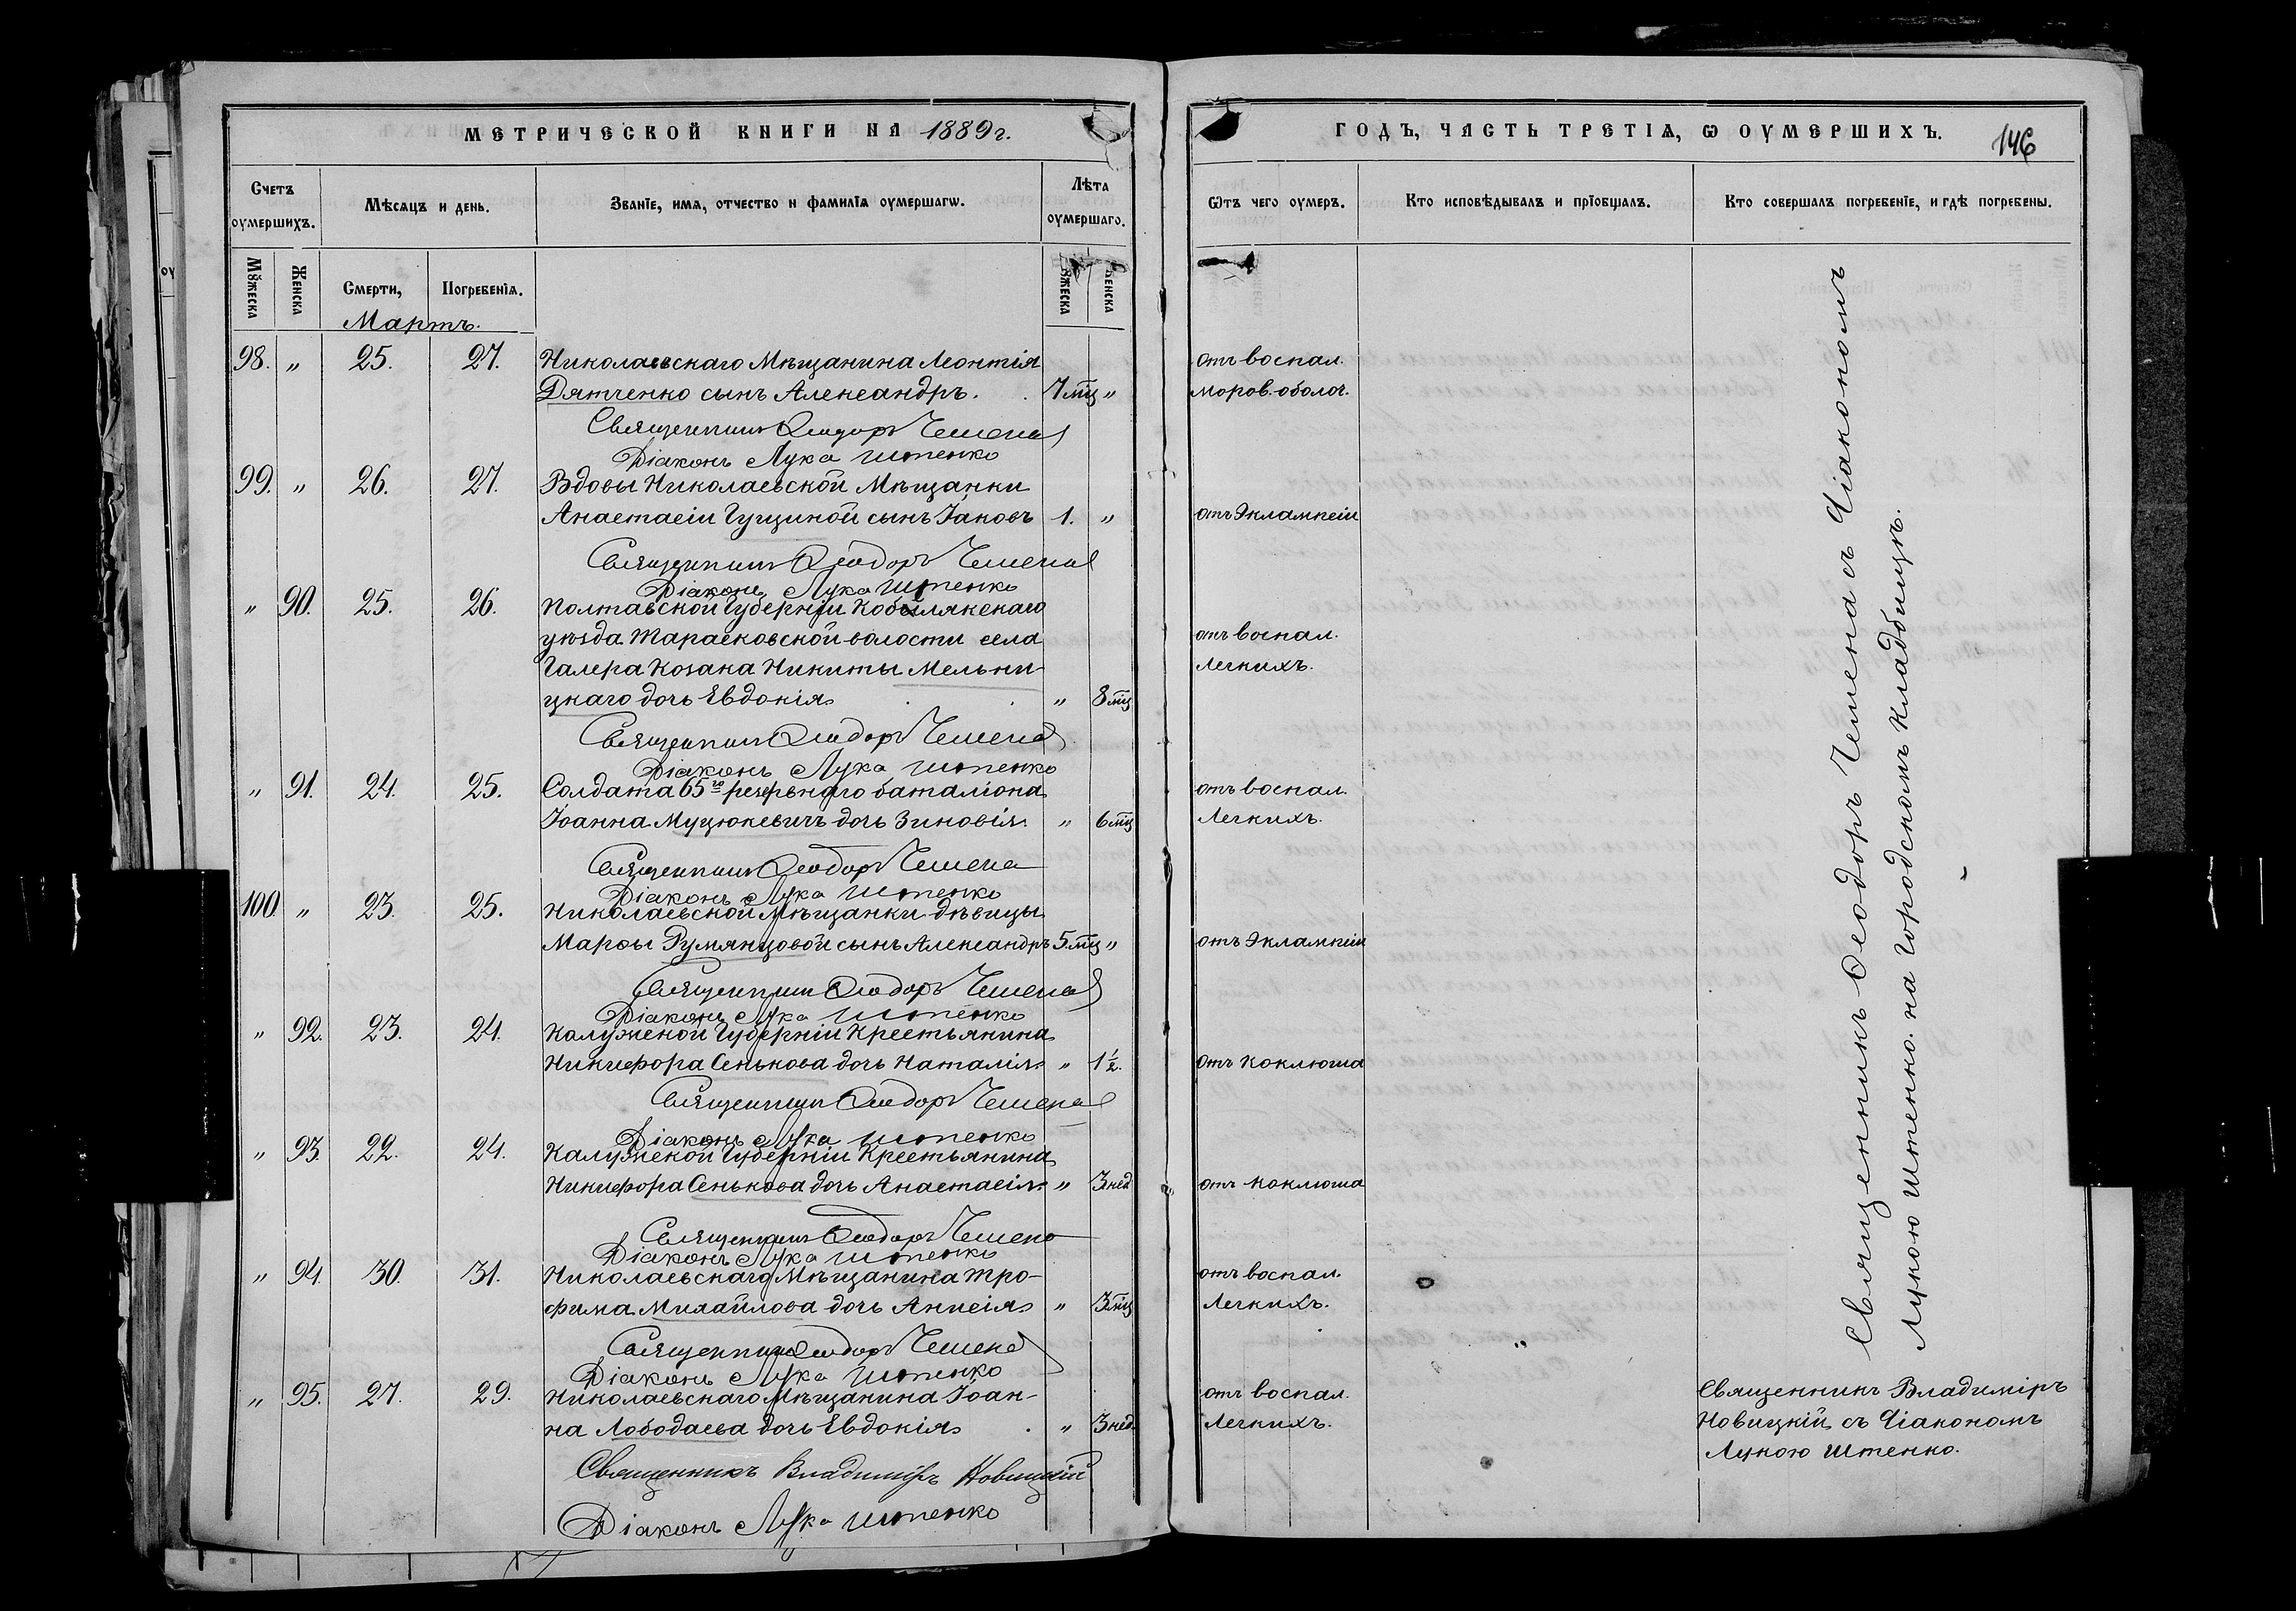 МЕТРИЧЕСКОЙ КНИГИ НА 1889 г.
Счетъ оумершихъ.
Мѣсяцъ и день.
Званіе, имя, отчество и фамилія оумершагѡ.
Лѣта оумершаго.
Мꙋжеска
Женска
Смерти,
Погребенія.
Мꙋжеска
Женска
Мартъ.
98. „ 25. 27. Николаевскаго Мѣщанина Леонтія
Дятченко сынъ Александръ. 7 мц „
Священникъ Ѳеодоръ Чемена
Діаконъ Лука Штенко
99. „ 26. 27. Вдовы Николаевской Мѣщанки
Анастасіи Гущиной сынъ Іаковъ 1. „
Священникъ Ѳеодоръ Чемена
Діаконъ Лука Штенко
„ 90. 25. 26. Полтавской Губерніи Кобылякскаго
уѣзда Тарасковской волости села
Галера Козака Никиты Мельни-
цкаго дочь Евдокія „ 8 мц
Священникъ Ѳеодоръ Чемена
Діаконъ Лука Штенко
„ 91. 24. 25. Солдата 65го резервнаго баталіона
Іоанна Муцюкевичъ дочь Зиновія „ 6 мц
Священникъ Ѳеодоръ Чемена
Діаконъ Лука Штенко
100. „ 23. 25. Николаевской Мѣщанки дѣвицы
Марѳы Румянцовой сынъ Александръ 5 мц „
Священникъ Ѳеодоръ Чемена
Діаконъ Лука Штенко
„ 92. 23. 24. Калужской Губерніи Крестьянина
Никифора Сенькова дочь Наталія „ 1½.
Священникъ Ѳеодоръ Чемена
Діаконъ Лука Штенко
„ 93. 22. 24. Калужской Губерніи Крестьянина
Никифора Сенькова дочь Анастасія „ 3 нед
Священникъ Ѳеодоръ Чемена
Діаконъ Лука Штенко
„ 94. 30. 31. Николаевскаго Мѣщанина Тро-
фима Михайлова дочь Анисія „ 3 мц
Священникъ Ѳеодоръ Чемена
Діаконъ Лука Штенко
„ 95. 27. 29. Николаевскаго Мѣщанина Іоан-
на Лободаева дочь Евдокія „ 3 нед.
Священникъ Владиміръ Новицкій
Діаконъ Лука Штенко
ГОДЪ, ЧАСТЬ ТРЕТІЯ, Ѡ ОУМЕРШИХЪ.
146
Ѿтъ чего оумеръ.
Кто исповѣдывалъ и пріобщалъ.
Кто совершалъ погребеніе, и гдѣ погребены.
отъ воспал.
мозгов. оболоч.
отъ Эклампсіи
отъ воспал.
Легкихъ.
отъ воспал.
Легкихъ.
отъ Эклампсіи
отъ Коклюша
отъ Коклюша
отъ воспал.
Легкихъ.
отъ воспал.
Легкихъ.
Священникъ Ѳеодоръ Чемена съ Діакономъ
Лукою Штенко. на Городскомъ кладбищѣ.
Священникъ Владиміръ
Новицкій съ Діакономъ
Лукою Штенко.